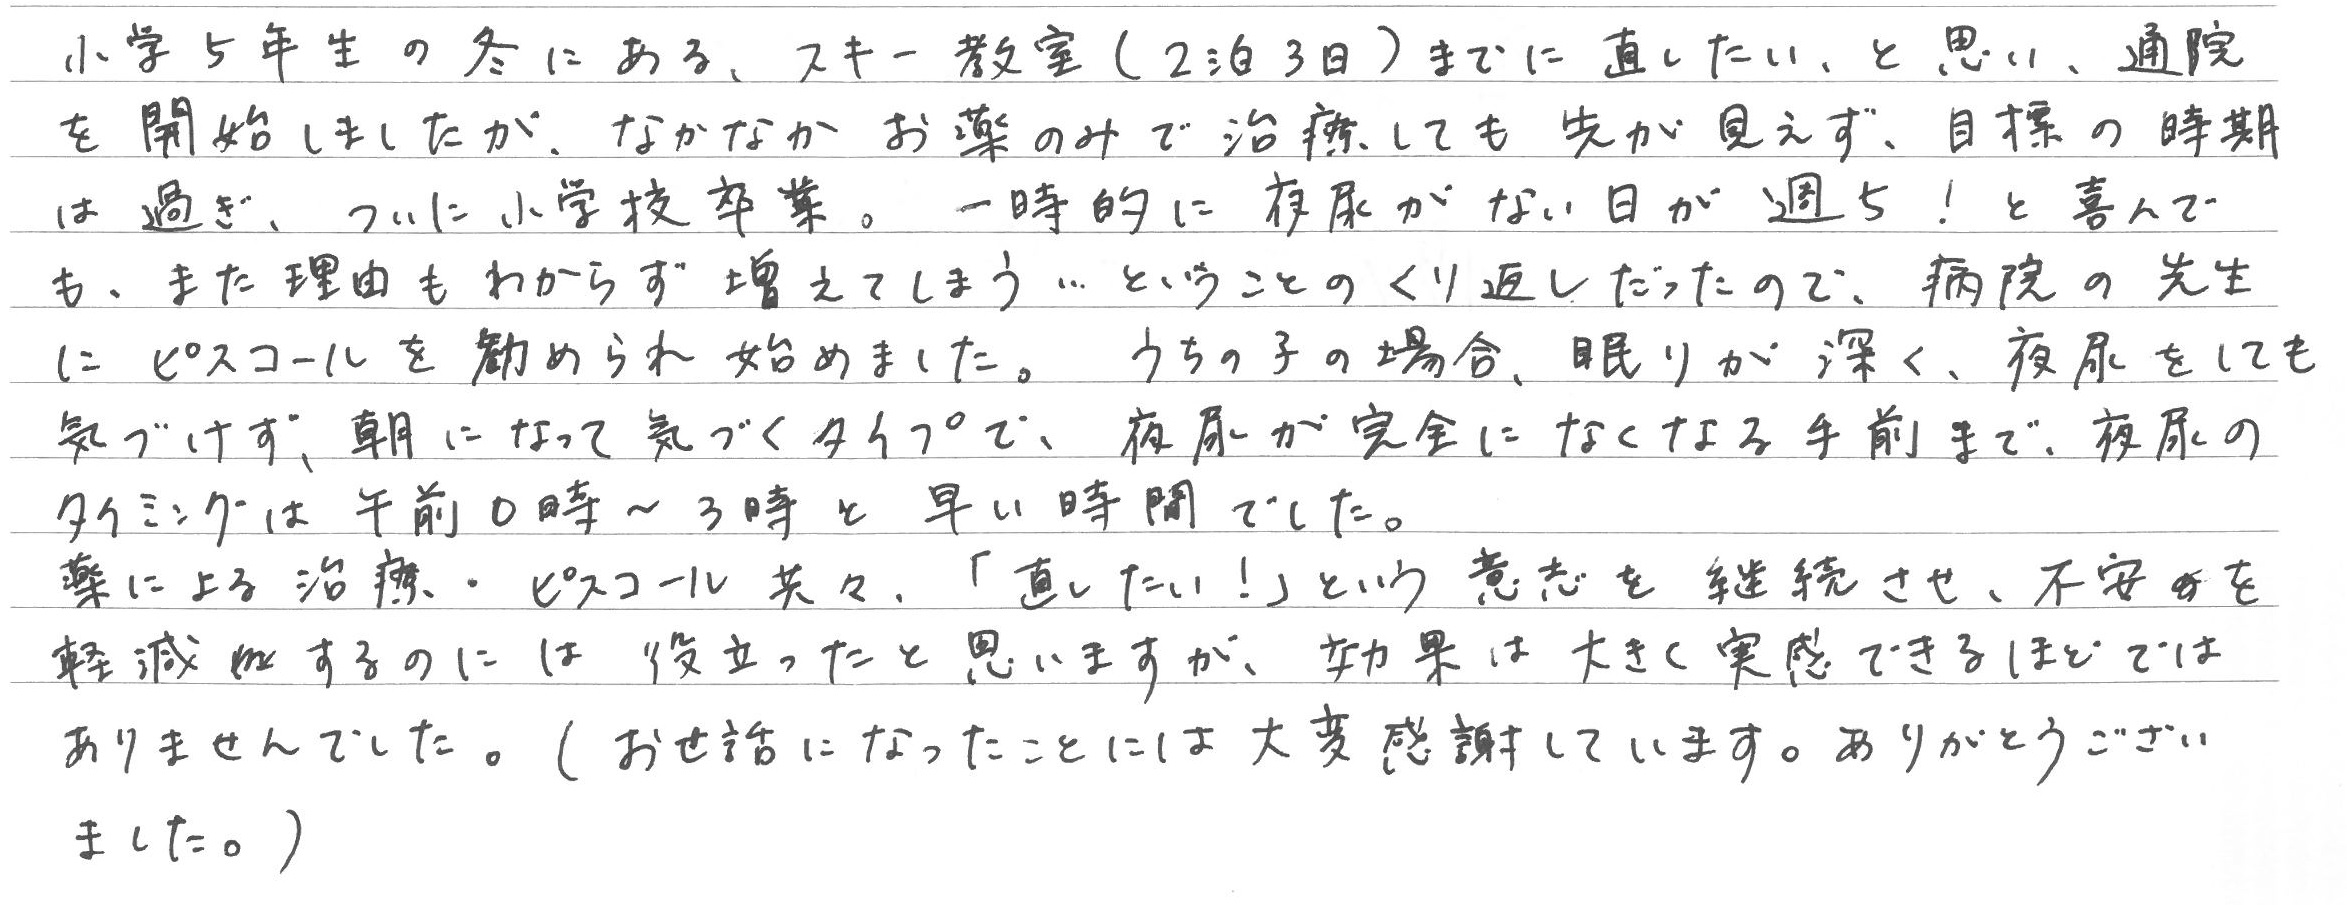 小学5年生の冬にある、スキー教室(2泊3日)までに直したい、と思い、通院
を開始しましたが、なかなかお薬のみで治療しても先が見えず、目標の時期
は過ぎ、ついに小学校卒業。一時的に夜尿がない日が週5!と喜んで
も、また理由もわからず増えてしまう…ということのくり返しだったので、病院の先生
にピスコールを勧められ始めました。 うちの子の場合、眠りが深く、夜尿をしても
気づけず、朝になって気づくタイプで、夜尿が完全になくなる手前まで、夜尿の
タイミングは午前0時~3時と早い時間でした。
薬による治療・ピスコール共々、「直したい!」という意志を継続させ、不安を
軽減するのには役立ったと思いますが、効果は大きく実感できるほどでは
ありませんでした。(お世話になったことには大変感謝しています。ありがとうござい
ました。)